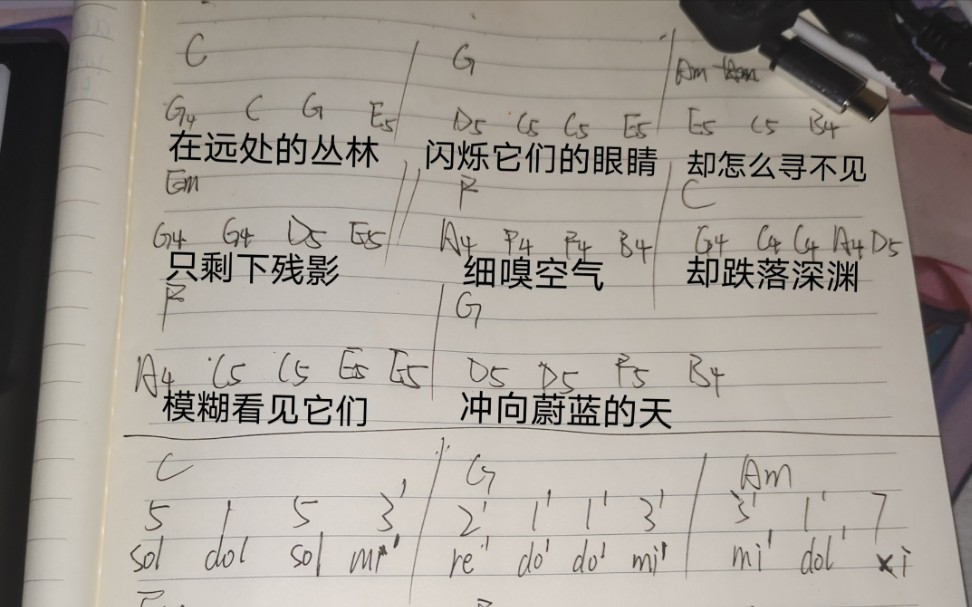 C G Am
G4 C G E5 D5 C5 C5 E5 E5 C5 B4
在远处的丛林 闪烁它们的眼睛 却怎么寻不见
Em F C
G4 G4 D5 E5 A4 F4 F4 B4 G4 C4 C4 A4 D5
只剩下残影 细嗅空气 却跌落深渊
F G
A4 C5 C5 E5 E5 D5 D5 F5 B4
模糊看见它们 冲向蔚蓝的天
C G Am
5 1 5 3' 2' 1' 1' 3' 3' 1' 7
sol dol sol mi' re' do' do' mi' mi' dol' xi